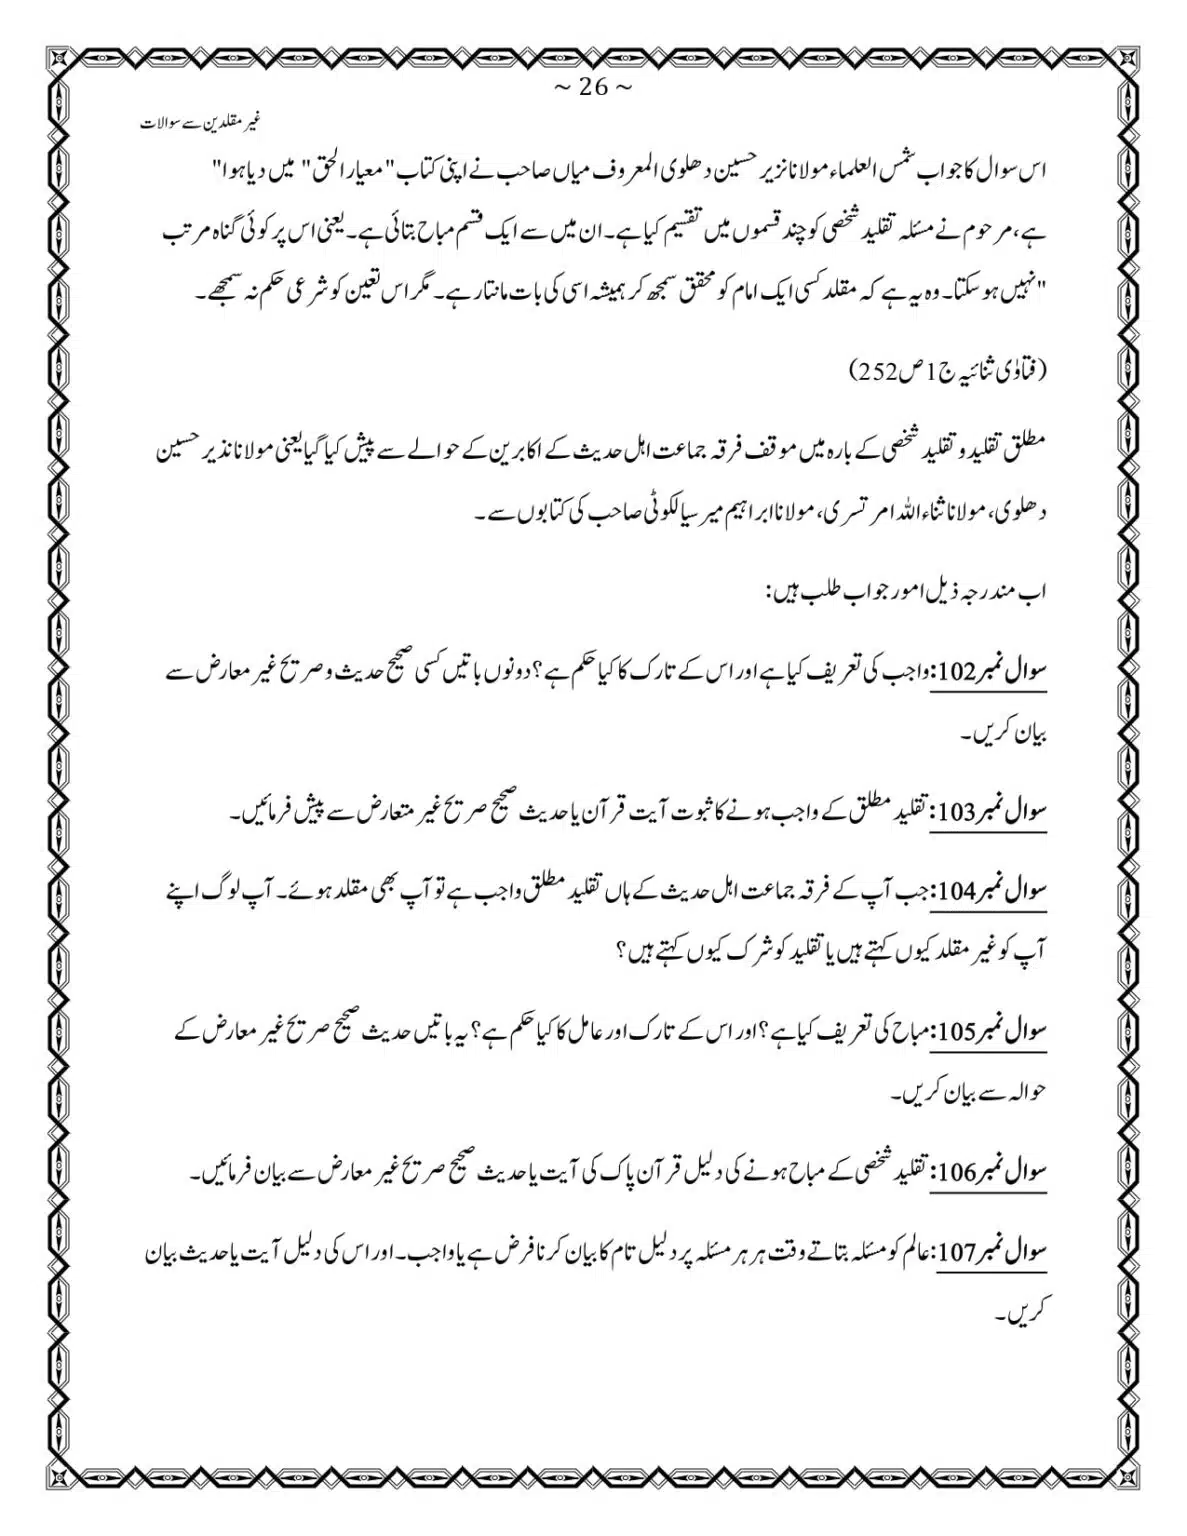 ~ 26 ~
غیر مقلدین سے سوالات
اس سوال کا جواب شمس العلماء مولانا نزیر حسین دھلوی المعروف میاں صاحب نے اپنی کتاب "معیار الحق" میں دیا ہوا"
ہے، مرحوم نے مسئلہ تقلید شخصی کو چند قسموں میں تقسیم کیا ہے۔ ان میں سے ایک قسم مباح بتائی ہے۔ یعنی اس پر کوئی گناہ مرتب
"نہیں ہو سکتا۔ وہ یہ ہے کہ مقلد کسی ایک امام کو محقق سمجھ کر ہمیشہ اسی کی بات مانتا رہے۔ مگر اس تعین کو شرعی حکم نہ سمجھے۔
(فتاوٰی ثنائیہ ج1ص252)
مطلق تقلید و تقلید شخصی کے بارہ میں موقف فرقہ جماعت اہل حدیث کے اکابرین کے حوالے سے پیش کیا گیا یعنی مولانا نذیر حسین
دھلوی، مولانا ثناء اللہ امرتسری، مولانا ابراہیم میر سیالکوٹی صاحب کی کتابوں سے۔
اب مندرجہ ذیل امور جواب طلب ہیں:
سوال نمبر102:واجب کی تعریف کیا ہے اور اس کے تارک کا کیا حکم ہے؟ دونوں باتیں کسی صحیح حدیث و صریح غیر معارض سے
بیان کریں۔
سوال نمبر103: تقلید مطلق کے واجب ہونے کا ثبوت آیت قرآن یا حدیث صحیح صریح غیر متعارض سے پیش فرمائیں۔
سوال نمبر104:جب آپ کے فرقہ جماعت اہل حدیث کے ہاں تقلید مطلق واجب ہے تو آپ بھی مقلد ہوئے۔ آپ لوگ اپنے
آپ کو غیر مقلد کیوں کہتے ہیں یا تقلید کو شرک کیوں کہتے ہیں؟
سوال نمبر105:مباح کی تعریف کیا ہے؟ اور اس کے تارک اور عامل کا کیا حکم ہے؟ یہ باتیں حدیث صحیح صریح غیر معارض کے
حوالہ سے بیان کریں۔
سوال نمبر106: تقلید شخصی کے مباح ہونے کی دلیل قرآن پاک کی آیت یا حدیث صحیح صریح غیر معارض سے بیان فرمائیں۔
سوال نمبر107:عالم کو مسئلہ بتاتے وقت ہر ہر مسئلہ پر دلیل تام کا بیان کرنا فرض ہے یا واجب۔ اور اس کی دلیل آیت یا حدیث بیان
کریں۔